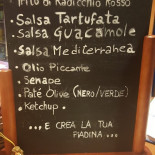 Trito di Radicchio Rosso
• Salsa Tartufata
• Salsa Guacamole
• Salsa Mediterranea
• Olio Piccante
• Senape
• Paté Olive (NERO/VERDE)
• Ketchup.
...E CREA LA TUA
PIADINA...